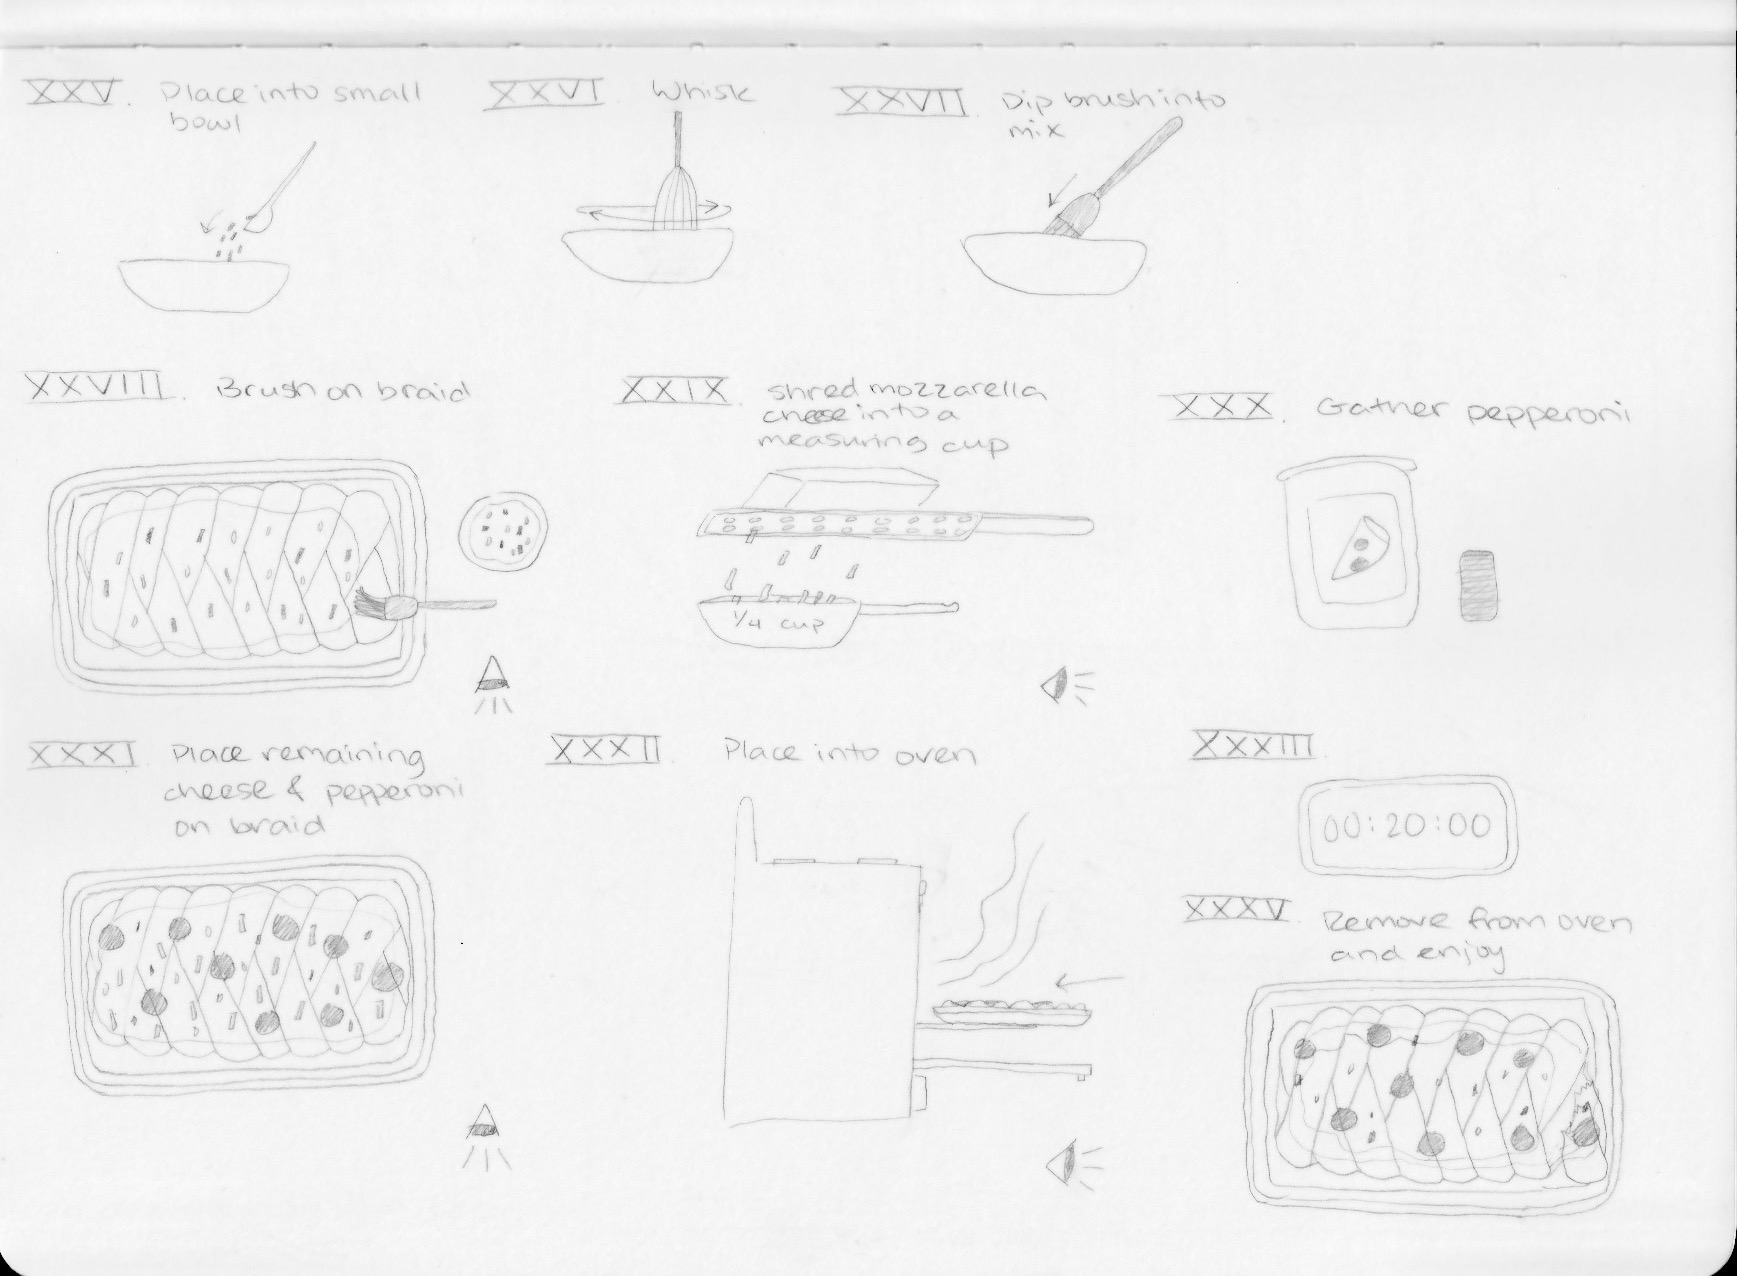 XXV. Place into small
bowl
XXVI Whisk
XXVII Dip brush into
mix
XXVIII. Brush on braid
XXIX. shred mozzarella
cheese into a
measuring cup
1/4 cup
XXX. Gather pepperoni
XXXI Place remaining
cheese & pepperoni
on braid
XXXII Place into oven
XXXIII.
00:20:00
XXXV. Remove from oven
and enjoy